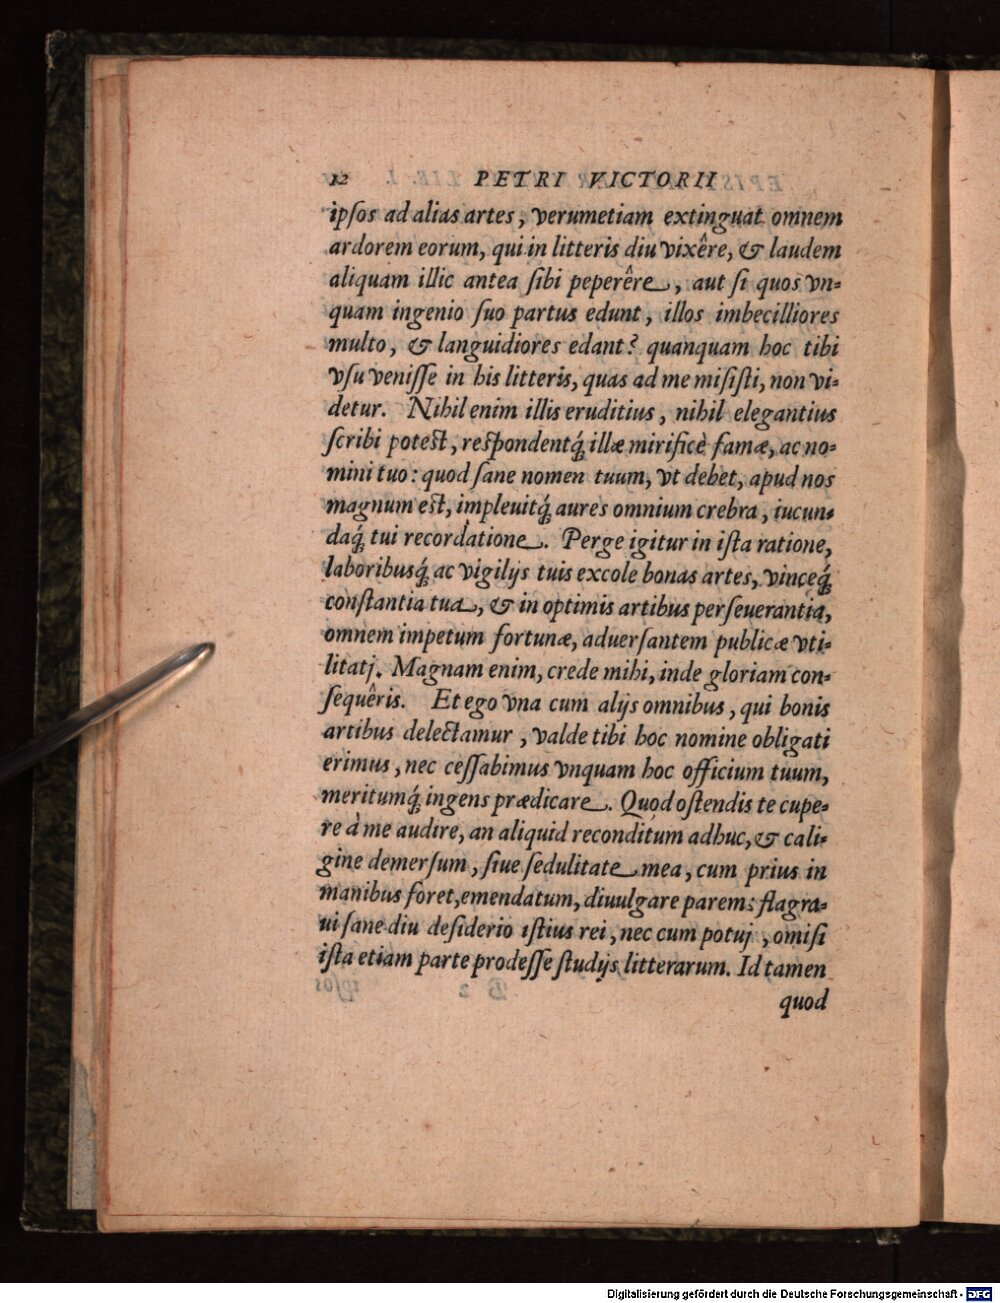 12 PETRI VICTORII
ipſos ad alias artes, verumetiam extinguat omnem
ardorem eorum, qui in litteris diu vixêre, & laudem
aliquam illic antea ſibi peperêre, aut ſi quos vn-
quam ingenio ſuo partus edunt, illos imbecilliores
multo, & languidiores edant? quanquam hoc tibi
vſu veniſſe in his litteris, quas ad me miſiſti, non vi-
detur. Nihil enim illis eruditius, nihil elegantius
ſcribi poteſt, reſpondentq́; illæ mirificè famæ, ac no-
mini tuo: quod ſane nomen tuum, vt debet, apud nos
magnum eſt, impleuitq́; aures omnium crebra, iucun-
daq́; tui recordatione. Perge igitur in iſta ratione,
laboribusq́; ac vigilijs tuis excole bonas artes, vinceq́;
conſtantia tua, & in optimis artibus perſeuerantia,
omnem impetum fortunæ, aduerſantem publicæ vti-
litatj. Magnam enim, crede mihi, inde gloriam con-
ſequêris. Et ego vna cum alijs omnibus, qui bonis
artibus delectamur, valde tibi hoc nomine obligati
erimus, nec ceſſabimus vnquam hoc officium tuum,
meritumq́; ingens prædicare. Quod oſtendis te cupe-
re à me audire, an aliquid reconditum adhuc, & cali-
gine demerſum, ſiue ſedulitate mea, cum prius in
manibus foret, emendatum, diuulgare parem: flagra-
ui ſane diu deſiderio iſtius rei, nec cum potuj, omiſi
iſta etiam parte prodeſſe ſtudijs litterarum. Id tamen
quod
Digitalisierung gefördert durch die Deutsche Forschungsgemeinschaft - DFG